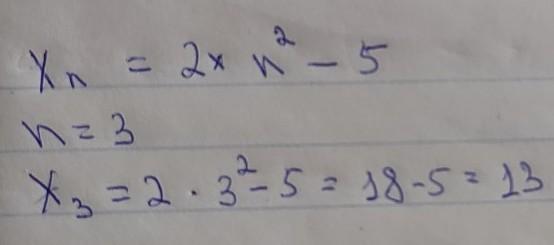 Xₙ = 2× n² - 5
n = 3
X₃ = 2 · 3² - 5 = 18 - 5 = 13